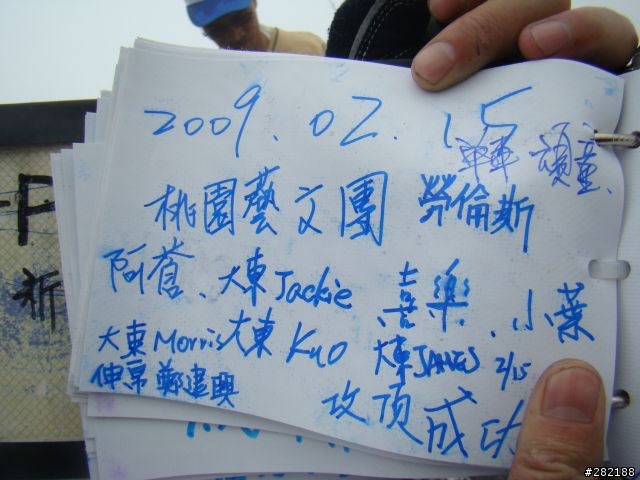 2009.02.15
頑童.
桃園藝文團 勞倫斯
阿蒼、大東Jackie 喜樂、小葉
大東Morris大東Kuo 大東JAMES 2/15
鄭建興
攻頂成功
#282188